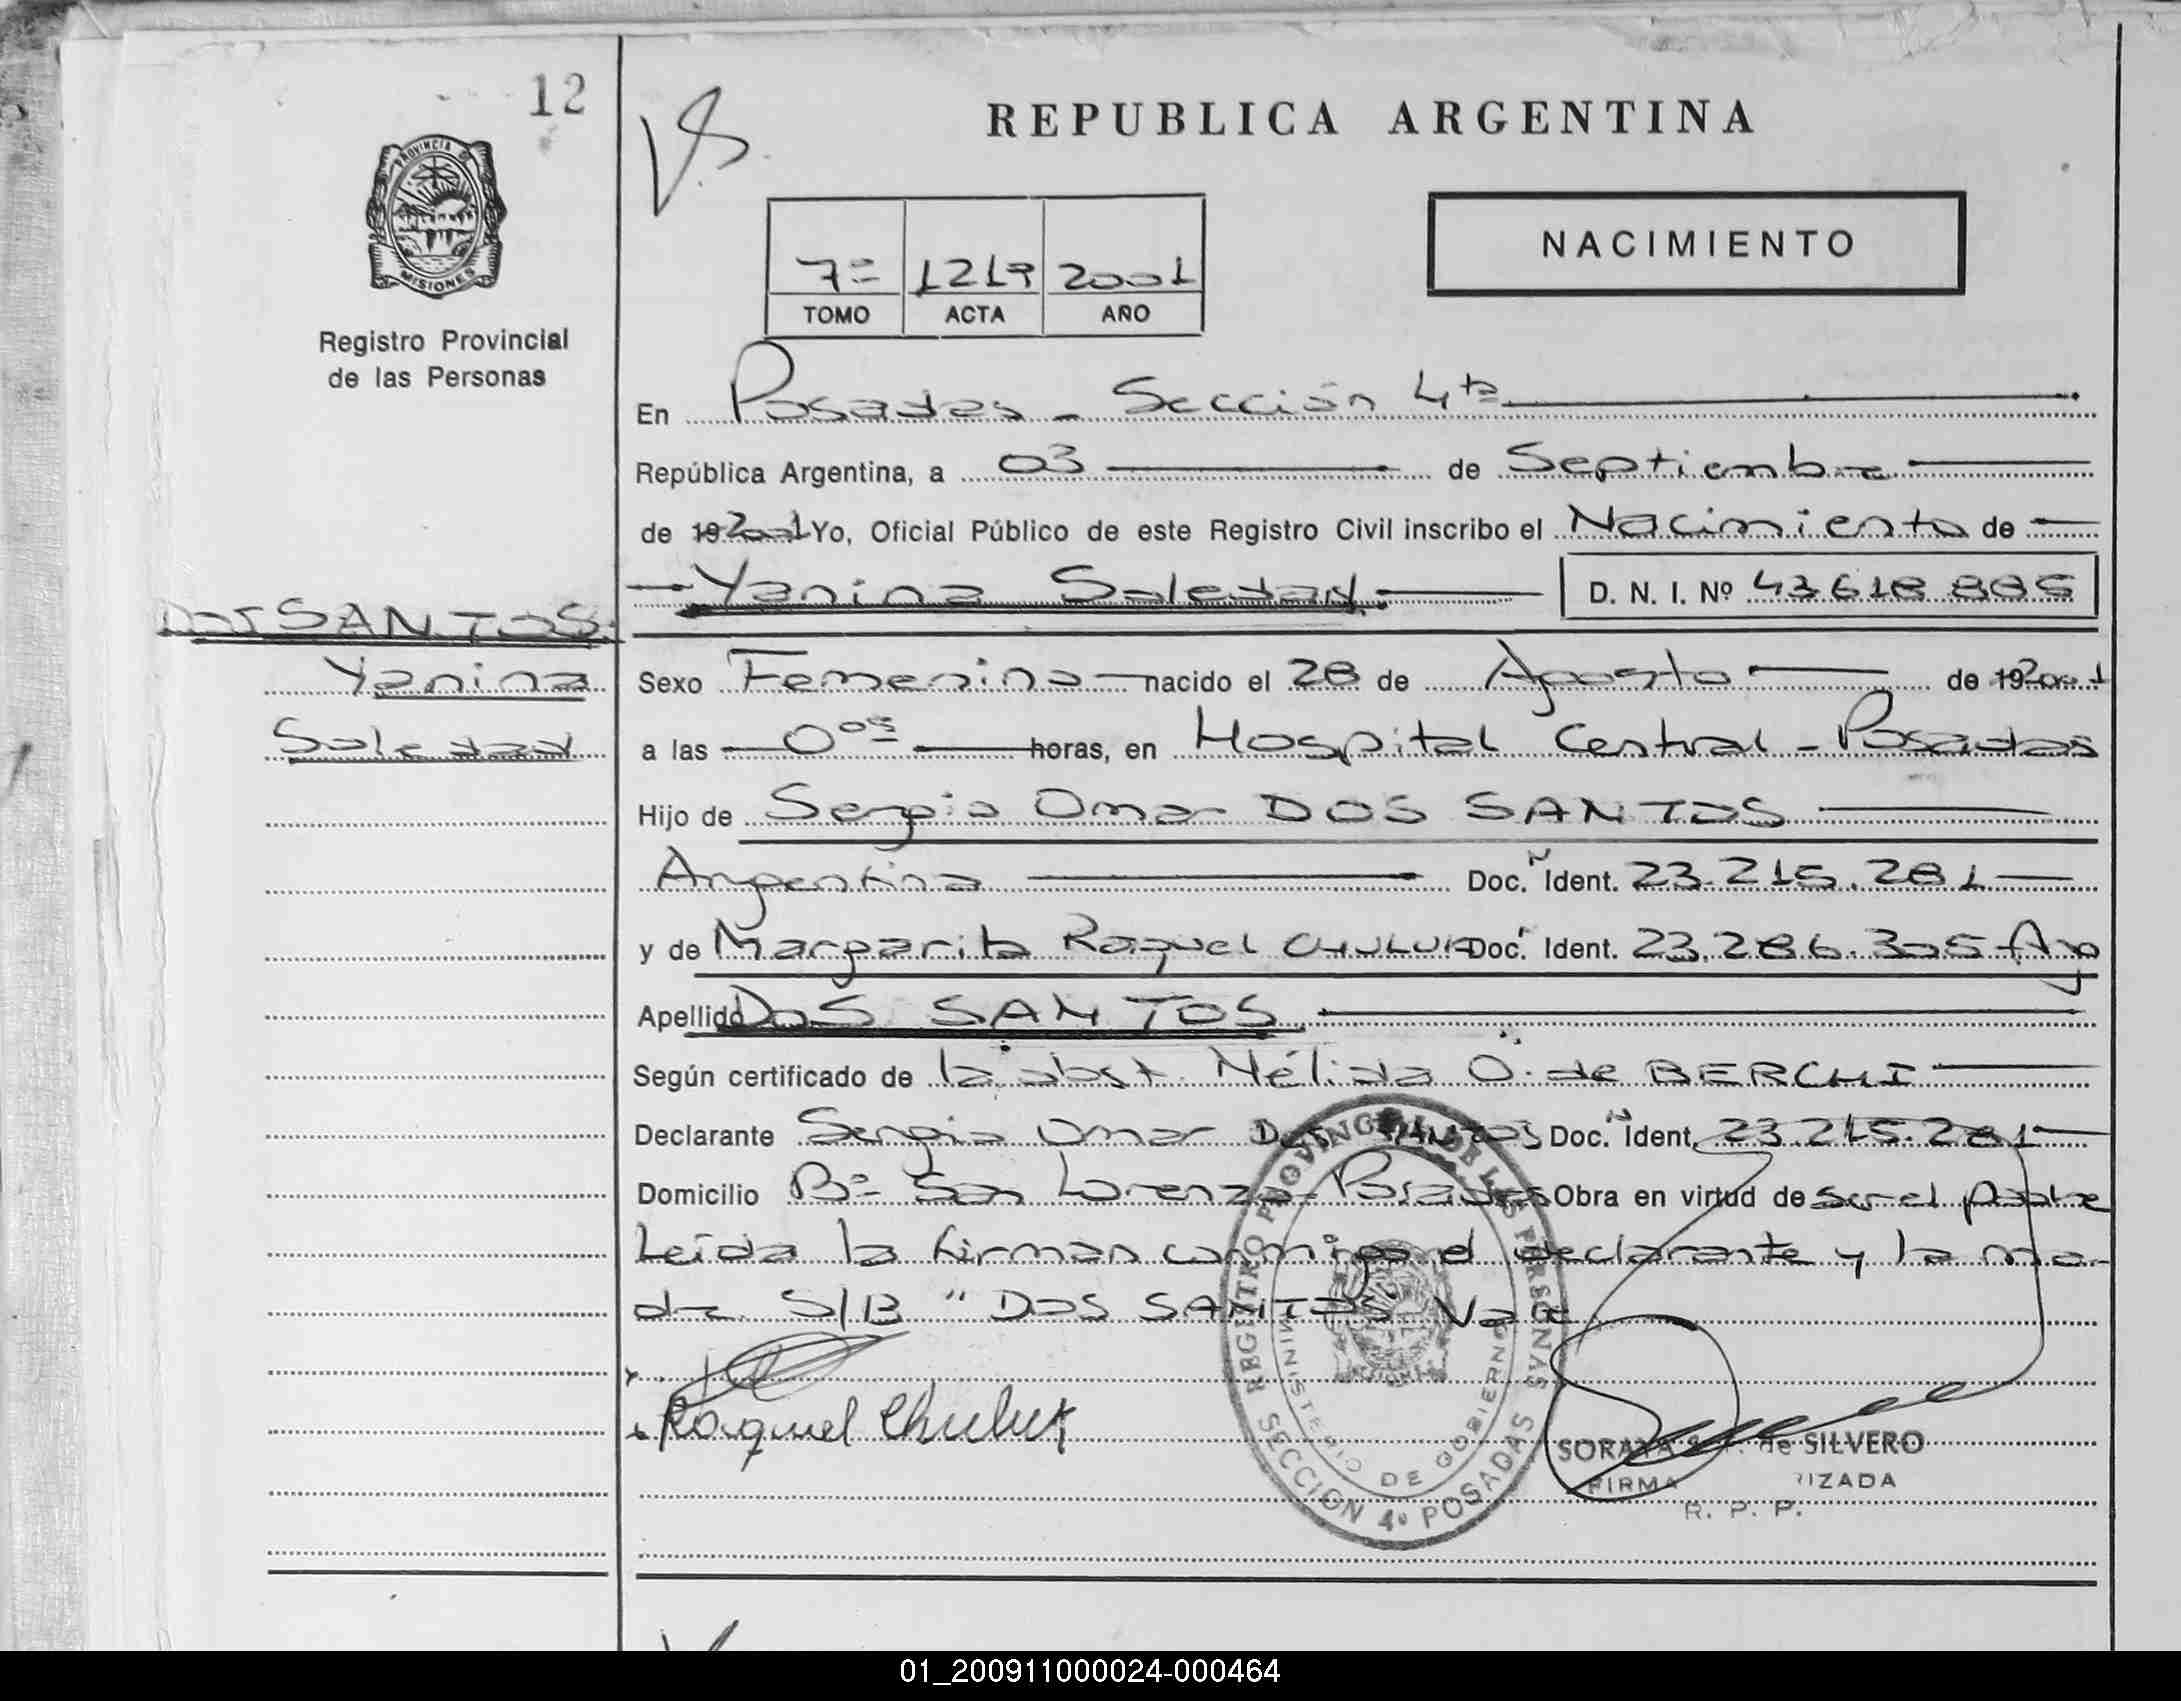 12
PROVINCIA DE
MISIONES
Registro Provincial
de las Personas
REPUBLICA ARGENTINA
NACIMIENTO
7º 1219 2001
TOMO ACTA AÑO
En Posadas - Sección 4ta
República Argentina, a 03 de Septiembre
de 192001 Yo, Oficial Público de este Registro Civil inscribo el Nacimiento de
Yanina Soledad D. N. I. Nº 43 618 885
DOS SANTOS
Yanina
Soledad
Sexo Femenino nacido el 28 de Agosto de 192001
a las 0 05 horas, en Hospital Central - Posadas
Hijo de Sergio Omar DOS SANTOS
Argentina Doc. N Ident. 23.215.281
y de Margarita Raquel CHULUK Doc. Ident. 23.286.305 Arg
Apellido DOS SANTOS
Según certificado de la obst. Nélida O. de BERCHI
Declarante Sergio Omar DOS SANTOS Doc. N Ident. 23.215.281
Domicilio Bº San Lorenzo - Posadas Obra en virtud de ser el padre
Leída la firman conmigo el declarante y la ma-
dre S/B " DOS SANTOS Vale
Raquel Chuluk
REGISTRO PROVINCIAL DE LAS PERSONAS
MINISTERIO DE GOBIERNO
SECCION 4º POSADAS
SORAYA de SILVERO
FIRMA
R. P. P.
01_200911000024-000464